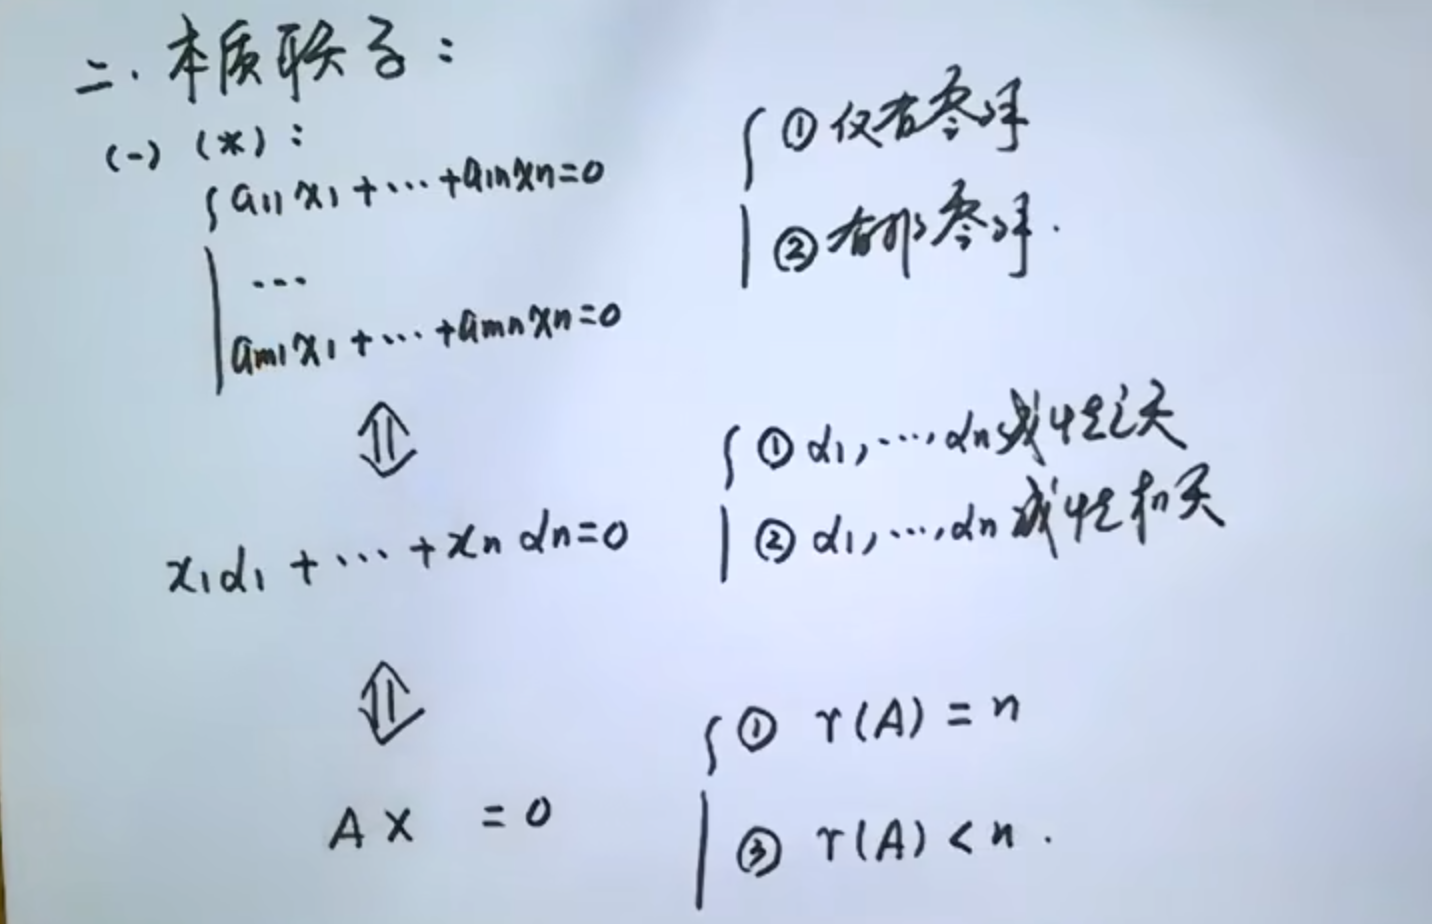 二. 本质联系:
(一) (*):
a11x1+…+a1nxn=0
…
am1x1+…+amnxn=0
① 仅有零解
② 有非零解.
⇕
x1α1+…+xnαn=0
① α1,…,αn线性无关
② α1,…,αn线性相关
⇕
AX =0
① r(A)=n
③ r(A)<n.